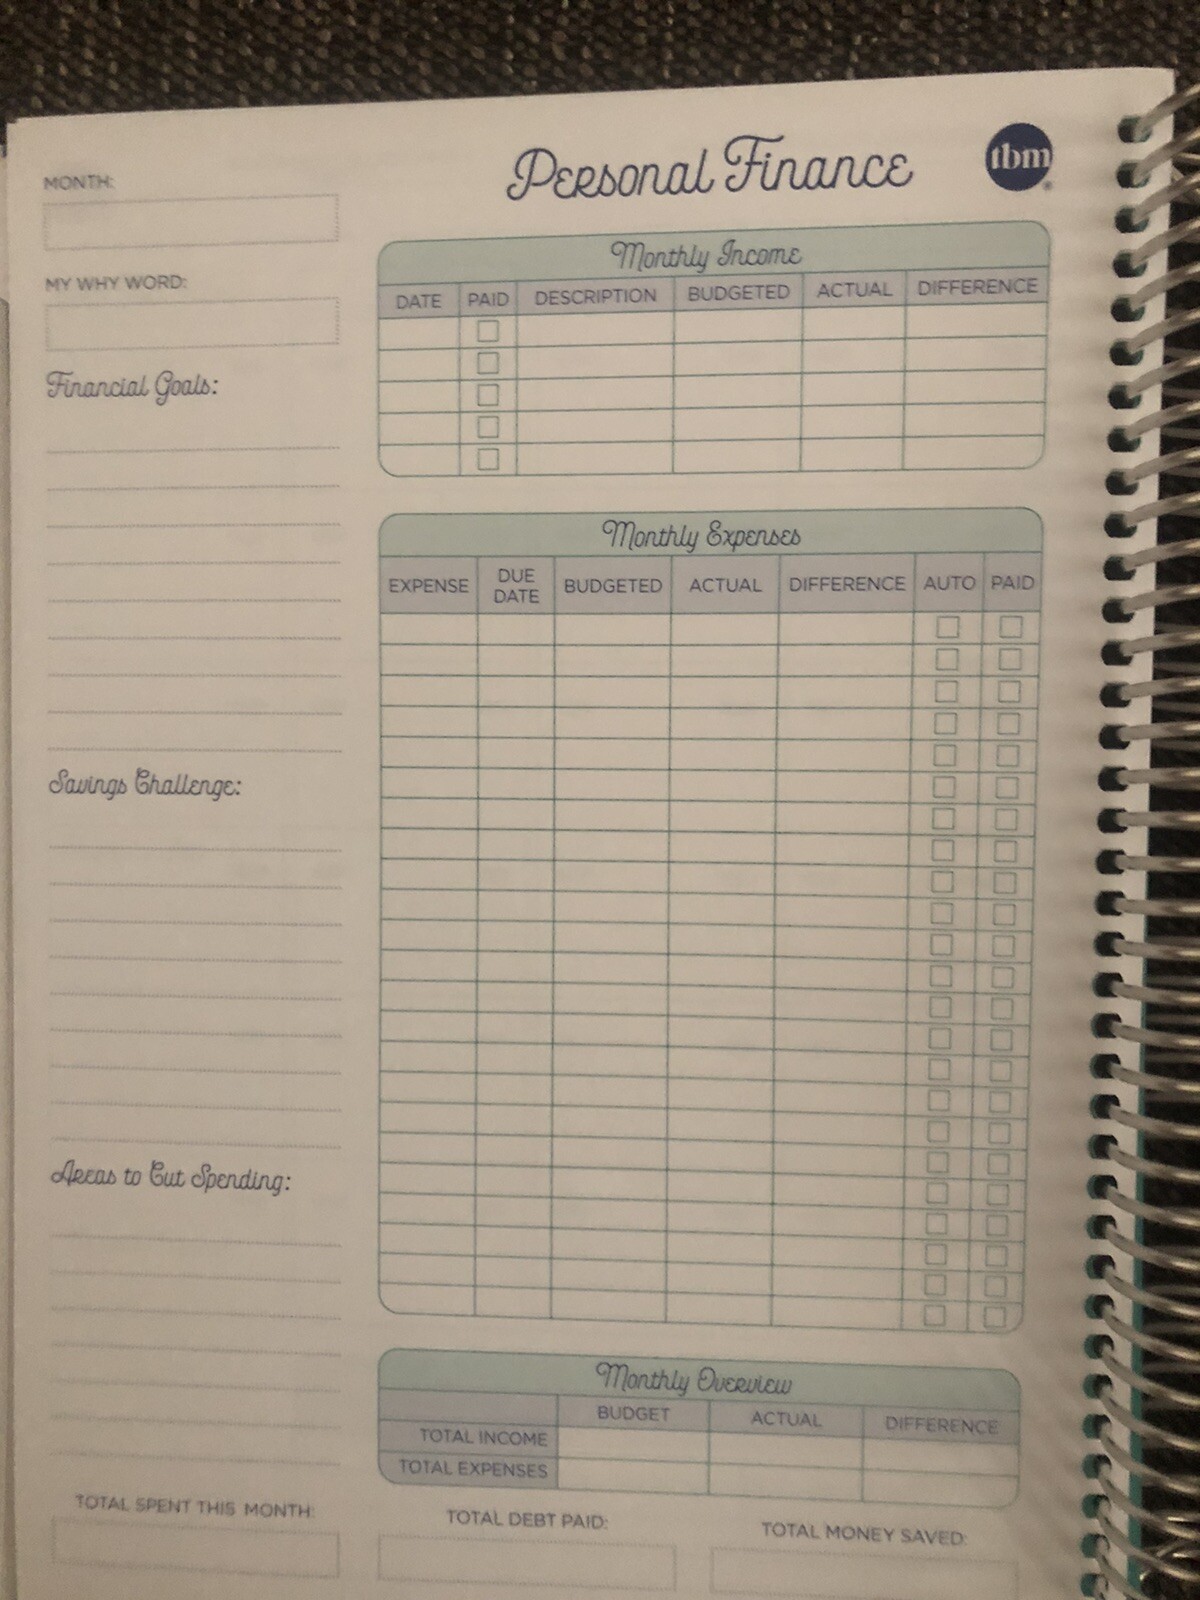 Personal Finance
tbm
MONTH:
MY WHY WORD:
Financial Goals:
Savings Challenge:
Areas to Cut Spending:
Monthly Income
DATE PAID DESCRIPTION BUDGETED ACTUAL DIFFERENCE
Monthly Expenses
EXPENSE DUE DATE BUDGETED ACTUAL DIFFERENCE AUTO PAID
Monthly Overview
BUDGET ACTUAL DIFFERENCE
TOTAL INCOME
TOTAL EXPENSES
TOTAL SPENT THIS MONTH:
TOTAL DEBT PAID:
TOTAL MONEY SAVED: